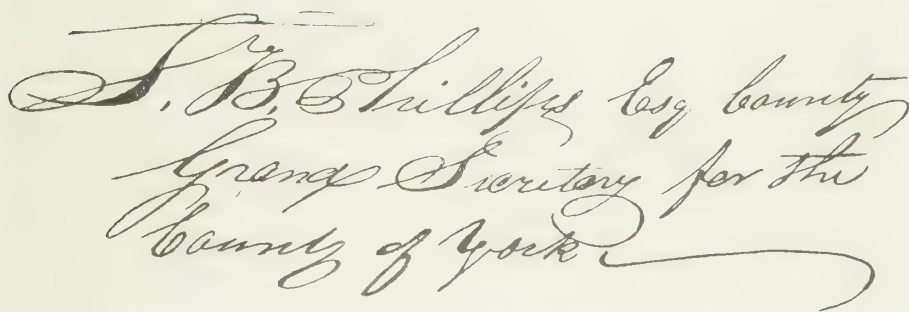 S. B. Phillips Esq County
Grand Secretary for the
County of York